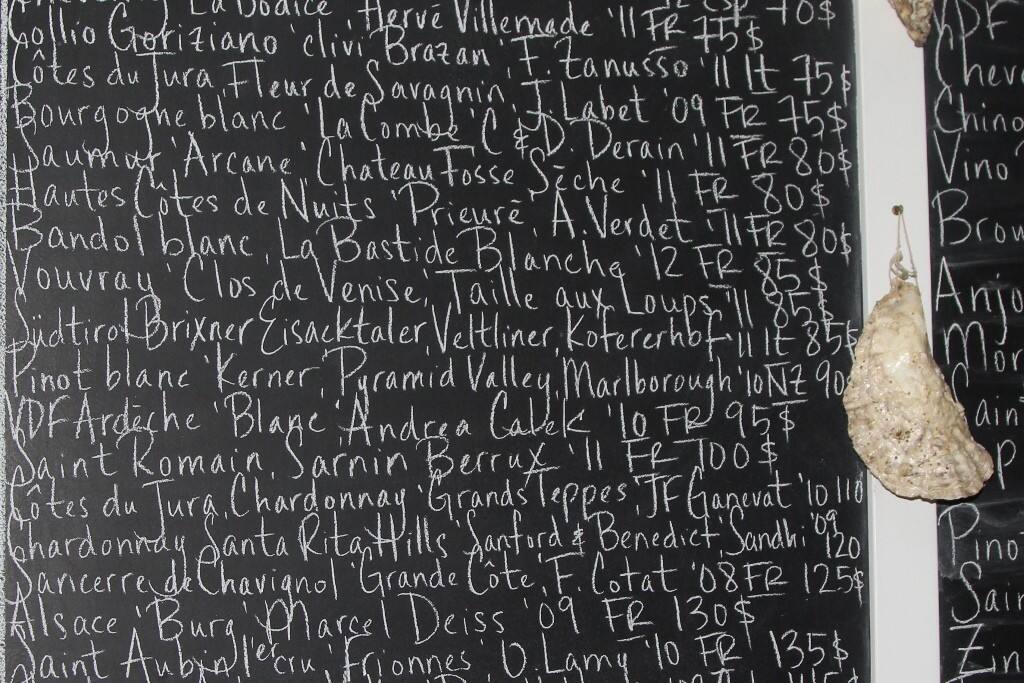 La Bodice' Hervé Villemade '11 FR 70$
Collio Goriziano 'clivi Brazan' F. Zanusso '11 It 75$
Côtes du Jura, Fleur de Savagnin, J. Labet '09 FR 75$
Bourgogne blanc 'La Combe' C & D. Derain '11 FR 80$
Saumur 'Arcane' Chateau Fosse Sèche '11 FR 80$
Hautes Côtes de Nuits 'Prieuré' A. Verdet '11 FR 80$
Bandol blanc, La Bastide Blanche '12 FR 85$
Vouvray 'Clos de Venise, Taille aux Loups, '11 85$
Südtirol Brixner Eisacktaler, Veltliner, Kofererhof '11 It 85$
Pinot blanc 'Kerner, Pyramid Valley, Marlborough '10 NZ 90
VDF Ardèche 'Blanc' Andrea Calek '10 FR 95$
Saint Romain, Sarnin Berrux '11 FR 100$
Côtes du Jura, Chardonnay 'Grands Teppes' JF Ganevat '10 110
Chardonnay Santa Rita Hills 'Sanford & Benedict, Sandhi '09 120
Sancerre de Chavignol 'Grande Côte, F. Cotat '08 FR 125$
Alsace 'Burg' Marcel Deiss '09 FR 130$
Saint Aubin 1er cru 'Frionnes' O. Lamy '10 FR 135$
VDF
Cheve
Chino
Vino
Brou
Anjo
Mor
aint
P
Pino
Sain
Zin